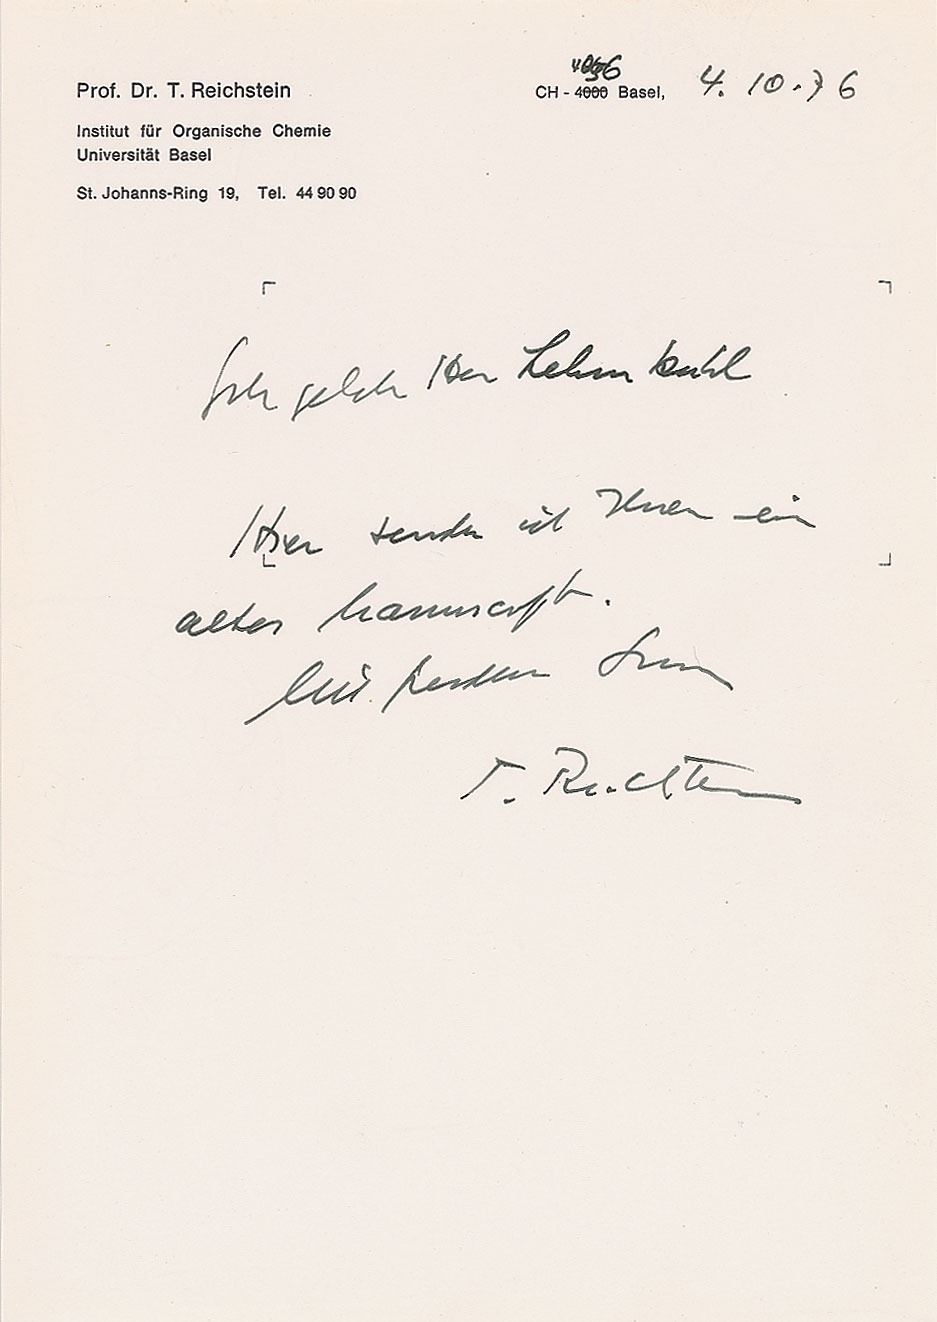 Prof. Dr. T. Reichstein
Institut für Organische Chemie
Universität Basel
St. Johanns-Ring 19, Tel. 44 90 90
4056
CH - 4000 Basel, 4. 10. 76
Sehr geehrter Herr Lehmkuhl
Hier sende ich Ihnen ein
altes Manuscript.
Mit besten
T. Reichstein